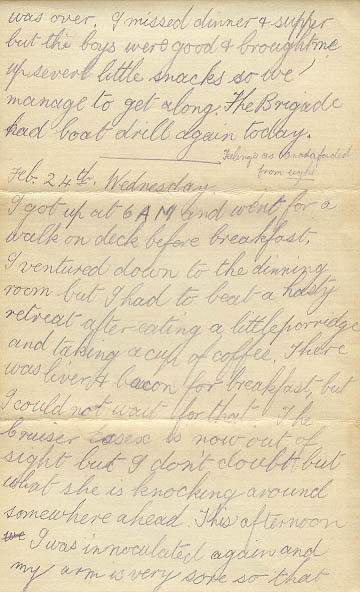 was over. I missed dinner & supper
but the boys were good & brought me
up severl little snacks so we
manage to get along. The Brigade
had boat drill again today.
Feelings as Canada faded
from sight
Feb. 24th. Wednesday
I got up at 6 AM and went for a
walk on deck before breakfast.
I ventured down to the dinning
room but I had to beat a hasty
retreat after eating a little porridge
and taking a cup of coffee. There
was liver & bacon for breakfast, but
I could not wait for that. The
Cruiser Essex is now out of
sight but I don't doubt but
what she is knocking around
somewhere ahead. This afternoon
we I was innoculated again and
my arm is very sore so that